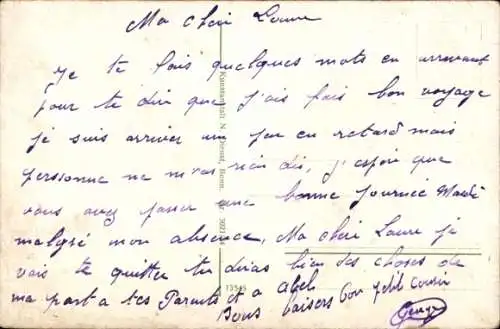 Ma chéri Laure
Je te fais quelques mots en arrivant
pour te dire que j'ais fais bon voyage
je suis arriver un peu en retard mais
personne ne m'as rien dis, j'espère que
vous avez passer une bonne journée Mardi
malgré mon absence, Ma chéri Laure je
vais te quitter tu diras bien des choses de
ma part a tes Parents et a Abel
Bons baisers ton petit cousin
Georges
Kunstanstalt N. Dienst, Bonn
13545